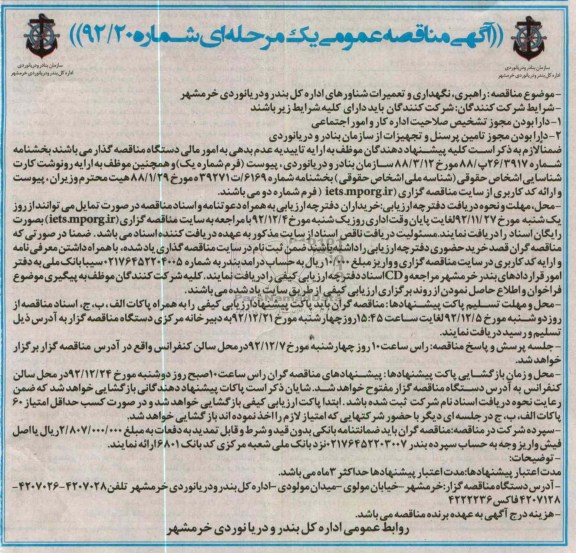 ((آگهی مناقصه عمومی یک مرحله‌ای شماره ۹۲/۲۰))
سازمان بنادر و دریانوردی
اداره کل بندر و دریانوردی خرمشهر
سازمان بنادر و دریانوردی
اداره کل بندر و دریانوردی خرمشهر
- موضوع مناقصه: راهبری، نگهداری و تعمیرات شناورهای اداره کل بندر و دریانوردی خرمشهر
- شرایط شرکت کنندگان: شرکت کنندگان باید دارای کلیه شرایط زیر باشند
۱- دارا بودن مجوز تشخیص صلاحیت اداره کار و امور اجتماعی
۲- دارا بودن مجوز تامین پرسنل و تجهیزات از سازمان بنادر و دریانوردی
ضمنا لازم به ذکر است کلیه پیشنهاد دهندگان موظف به ارایه تاییدیه عدم بدهی به امور مالی دستگاه مناقصه گذار می باشند بخشنامه
شماره ۲۶/۳۹۱۷پ/۸۸ مورخ ۸۸/۳/۱۲ سازمان بنادر و دریانوردی ، پیوست (فرم شماره یک) و همچنین موظف به ارایه رونوشت کارت
شناسایی اشخاص حقوقی (شناسه ملی اشخاص حقوقی) بخشنامه شماره ۶۱۶۹/ت۳۹۲۷۱ه مورخ ۸۸/۱/۲۹ هیت محترم وزیران ، پیوست
و ارائه کد کاربری از سایت مناقصه گزاری (iets.mporg.ir) ( فرم شماره دو می باشند.
- محل، مهلت و نحوه دریافت دفترچه ارزیابی: خریداران دفترچه ارزیابی به همراه دعوتنامه و اسناد مناقصه در صورت تمایل می توانند از روز
یک شنبه مورخ ۹۲/۱۱/۲۷ لغایت پایان وقت اداری روز یک شنبه مورخ ۹۲/۱۲/۴ با مراجعه به سایت مناقصه گزاری (iets.mporg.ir) بصورت
رایگان اسناد را دریافت نمایند. مسئولیت دریافت ناقص اسناد از سایت مذکور به عهده دریافت کننده اسناد می باشد. ضمنا در صورتی که
مناقصه گران قصد خرید حضوری دفترچه ارزیابی را داشته باشند ضمن ثبت نام در سایت مناقصه گذاری یاد شده، با همراه داشتن معرفی نامه
و ارایه کد کاربری در سایت مناقصه گزاری و واریز مبلغ ۱۰۰/۰۰۰ ریال به حساب درآمد بندر به شماره ۲۱۷۶۴۵۲۲۰۴۰۰۵ سیبا بانک ملی به دفتر
امور قراردادهای بندر خرمشهر مراجعه و CD اسناد دفترچه ارزیابی کیفی را دریافت نمایند. کلیه شرکت کنندگان موظف به پیگیری موضوع
فراخوان و اطلاع حاصل نمودن از روند برگزاری ارزیابی کیفی از طریق سایت یاد شده می باشند.
- محل و مهلت تسلیم پاکت پیشنهادها: مناقصه گران باید پاکت پیشنهاد ارزیابی کیفی را به همراه پاکات الف، ب، ج، اسناد مناقصه از
روز دوشنبه مورخ ۹۲/۱۲/۵ لغایت ساعت ۱۵:۴۵ روز چهارشنبه مورخ ۹۲/۱۲/۲۱ به دبیرخانه مرکزی دستگاه مناقصه گزار به آدرس ذیل
تسلیم و رسید دریافت نمایند.
- جلسه پرسش و پاسخ مناقصه: راس ساعت ۱۰ روز چهارشنبه مورخ ۹۲/۱۲/۷ در محل سالن کنفرانس واقع در آدرس مناقصه گزار برگزار
خواهد شد.
- محل و زمان بازگشایی پاکت پیشنهادها: پیشنهادهای مناقصه گران راس ساعت ۱۰ صبح روز دوشنبه مورخ ۹۲/۱۲/۲۴ در محل سالن
کنفرانس به آدرس دستگاه مناقصه گزار مفتوح خواهد شد. شایان ذکر است پاکات پیشنهاد دهندگانی بازگشایی خواهد شد که ضمن
رعایت نحوه دریافت اسناد نام شرکت ثبت شده باشد. ابتدا پاکت ارزیابی کیفی بازگشایی خواهد شد و در صورت کسب حداقل امتیاز ۶۰
پاکات الف، ب، ج در جلسه ای دیگر با حضور شرکتهایی که امتیاز لازم را اخذ نموده اند بازگشایی خواهد شد.
- سپرده شرکت در مناقصه: مناقصه گران باید ضمانتنامه بانکی بدون قید و شرط و قابل تمدید به دفعات به مبلغ ۲/۸۰۷/۰۰۰/۰۰۰ ریال یا اصل
فیش واریز وجه به حساب سپرده بندر ۲۱۷۶۴۵۲۲۰۳۰۰۷ نزد بانک ملی شعبه مرکزی کد بانک ۶۸۰۱ ارائه نمایند.
- توضیحات:
مدت اعتبار پیشنهادها: مدت اعتبار پیشنهادها حداکثر ۳ ماه می باشد.
- آدرس دستگاه مناقصه گزار: خرمشهر -خیابان مولوی -میدان مولودی -اداره کل بندر و دریانوردی خرمشهر تلفن ۴۲۰۷۰۲۸-۴۲۰۷۰۲۶-
۴۲۰۷۱۲۸ فاکس ۴۲۲۲۲۳۶
- هزینه درج آگهی به عهده برنده مناقصه می باشد.
روابط عمومی اداره کل بندر و دریانوردی خرمشهر